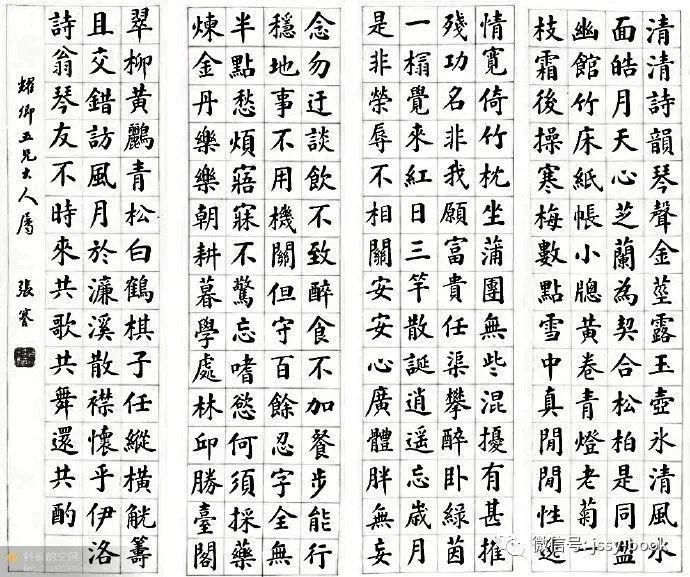 清清詩韻琴聲金莖露玉壺氷清風水
面皓月天心芝蘭為契合松柏是同盟
幽館竹床紙帳小牕黃卷青燈老菊
枝霜後操寒梅數點雪中真閒閒性逸
情寬倚竹枕坐蒲團無些混擾有甚推
殘功名非我願富貴任渠攀醉臥綠茵
一榻覺來紅日三竿散誕逍遥忘歲月
是非榮辱不相關安安心廣體胖無妄
念勿迂談飲不致醉食不加餐步能行
穩地事不用機關但守百餘忍字全無
半點愁煩寤寐不驚忘嗜慾何須採藥
煉金丹樂樂朝耕暮學處林邱勝臺閣
翠柳黃鸝青松白鶴棋子任縱橫觥籌
且交錯訪風月於濂溪散襟懷乎伊洛
詩翁琴友不時來共歌共舞還共酌
耀卿五兄大人屬 張謇
微信号: jssyjbook
科长的空间